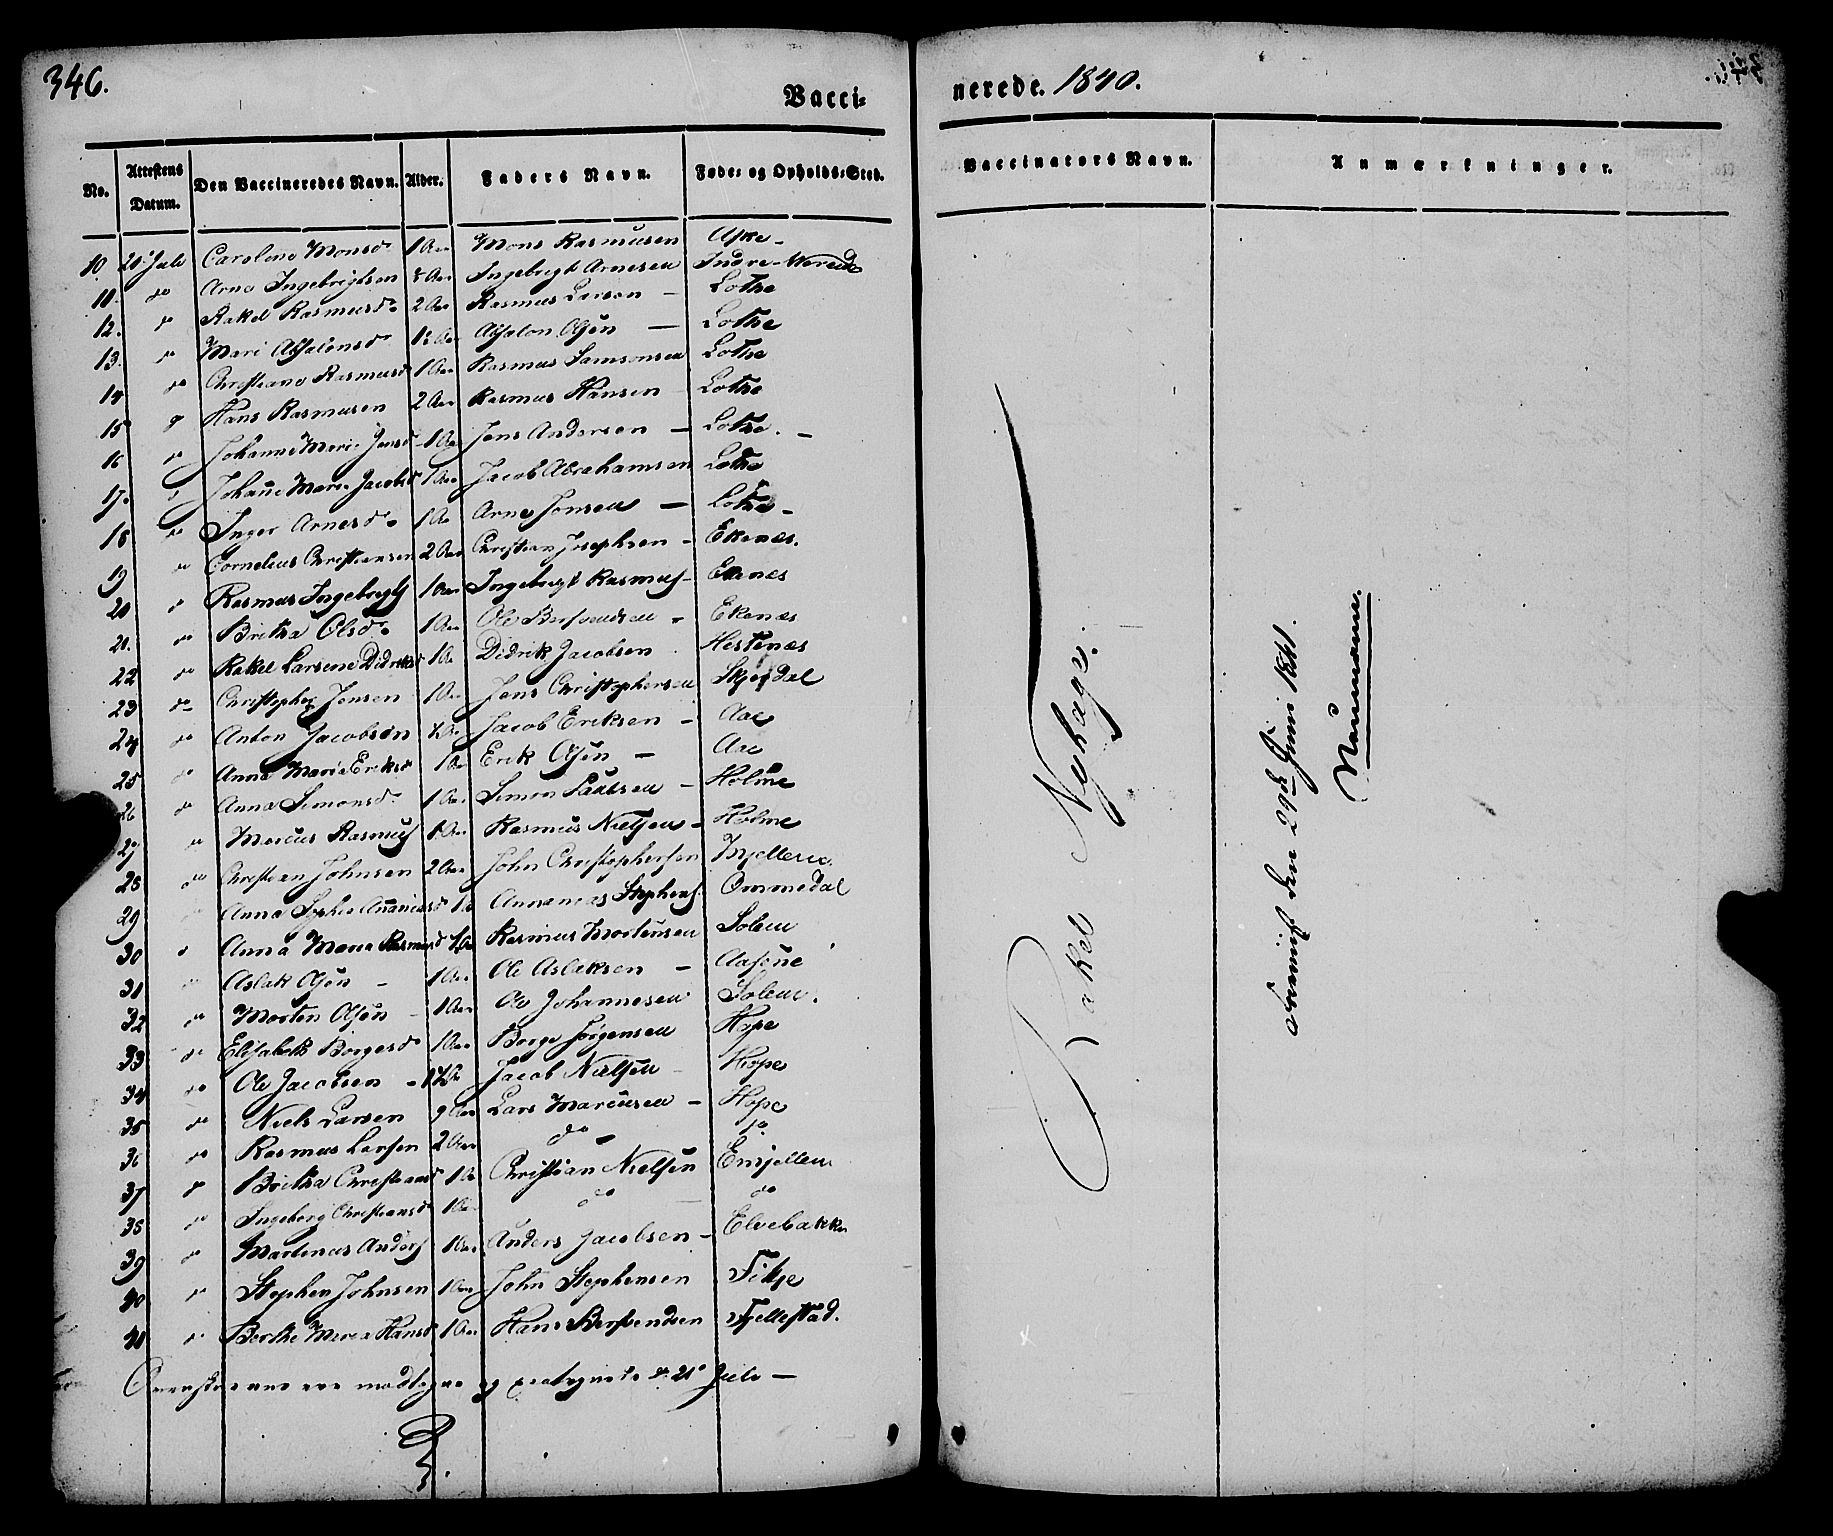 346.
Vacci= nerede. 1840.
No. Attestens Datum. Den Vaccineredes Navn. Alder. Faders Navn. Føde= og Opholds=Sted. Vaccinators Navn. Anmærkninger.
10 20. Juli Caroline Monsd. 1 Aar Mons Rasmusen Aske
11. do Arne Ingebrigtsen 8 Aar Ingebrigt Arnesen Indre
12. do Rakel Rasmusd. 2 Aar Rasmus Larsen — Lothe
13. do Mari Absalonsd. Absalon Olsen — Lothe
14 do Christiane Rasmusd 1 Aar Rasmus Samsonsen Lothe
15 Hans Rasmusen 2 Aar Rasmus Hansen Lothe
16 do Johanne Marie Jensd 1 Aar Jens Andersen — Lothe. —
17. Johanne Marie Jacobsd 1 Aar Jacob Abrahamsen Lothe
18 do Inger Arnesd. 1 Aar Arne Jonsen — Lothe —
19 do Cornelius Christiansen 2 Aar Christian Josephsen — Ekenæs.
20 Rasmus Ingebregts 1 Aar Ingebregt Rasmus Ekenæs
21. do Britha Olsd. 1 Aar Ole Ekenæs
22 do Rakel Larsine Didriksd 1 Aar Didrik Jacobsen Hestenæs
23 do Christopher Jensen 1 Aar Jens Christophersen Skjerdal
24 do Anton Jacobsen Jacob Eriksen — Aae
25 do Anna Marie Eriksd 1 Aar Erik Olsen — Aae
26 do Anna Simonsd. 1 Aar Simon Paulsen — Holme
27 do Marcus Rasmus Aar Rasmus Nielsen — Holme
28 do Christian Johnsen 2 Aar John Christophersen
29 Anna Sophie Ananiasd Annanias Stephens. Ommedal
30 Anna Maria Rasmusd Rasmus Mortensen Solem
31 Aslak Olsen — 1 Aar Ole Aslaksen — Aasene
32 do Morten Olsen — 1 Aar Ole Johannesen Solem.
33 do Elisabeth Borgesd 1 Aar Borge Jörgensen Hope
34 do Ole Jacobsen Jacob Nielsen Hope
35 do Niels Larsen 9 Aar Lars Marcusen — Hope
36 do Rasmus Larsen 2 Aar do do
37 Britha Christiansd 1 Aar Christian Nielsen Emjellem
38 do Ingeborg Christiansd 1 Aar do do
39 do Martinus Anders 1 Aar Anders Jacobsen — Elvebakke
40 Stephen Johnsen 1 Aar John Stephensen Fitje
41 do Berthe Maria Hansd 1 Aar Hans Fjellestad.
Ovenstaaende ere modtagne og protegnete d. 21 Juli —
Rakel Nyhage.
den 29de Juni 1841.
Naumann.